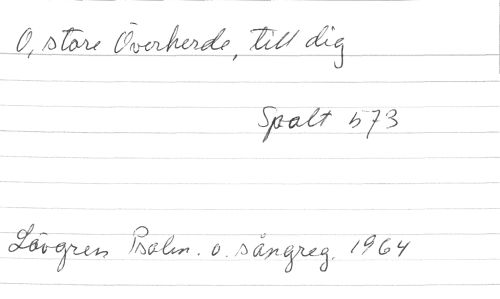 O, store Överherde, till dig
Spalt 573
Lövgren Psalm. o. sångreg. 1964